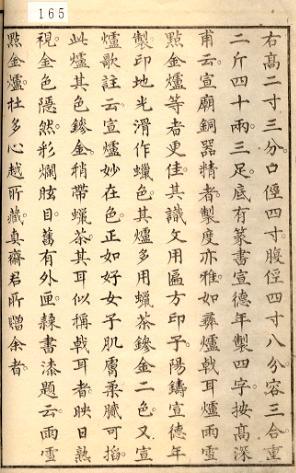 165
右高二寸三分。口徑四寸腹徑四寸八分。容三合重
二斤四十兩三足。底有篆書宣德年製四字。按高深
甫云。宣廟銅器精者。製度亦雅。如彝爐戟耳爐雨雪
點金爐等者更佳。其識文用匾方印子。陽鑄宣德年
製印地光滑作蠟色。其爐多用蠟茶鏒金二色。又宣
爐歌註云。宣爐妙在色。正如好女子肌膚柔膩可掐。
此爐其色鏒金。稍帶蠟茶。其耳似稱戟耳者。映日熟
視。金色隱然。彩爛眩目。舊有外匣。隸書漆題云。雨雪
點金爐。杜多心越所藏。真齋君所贈余者。